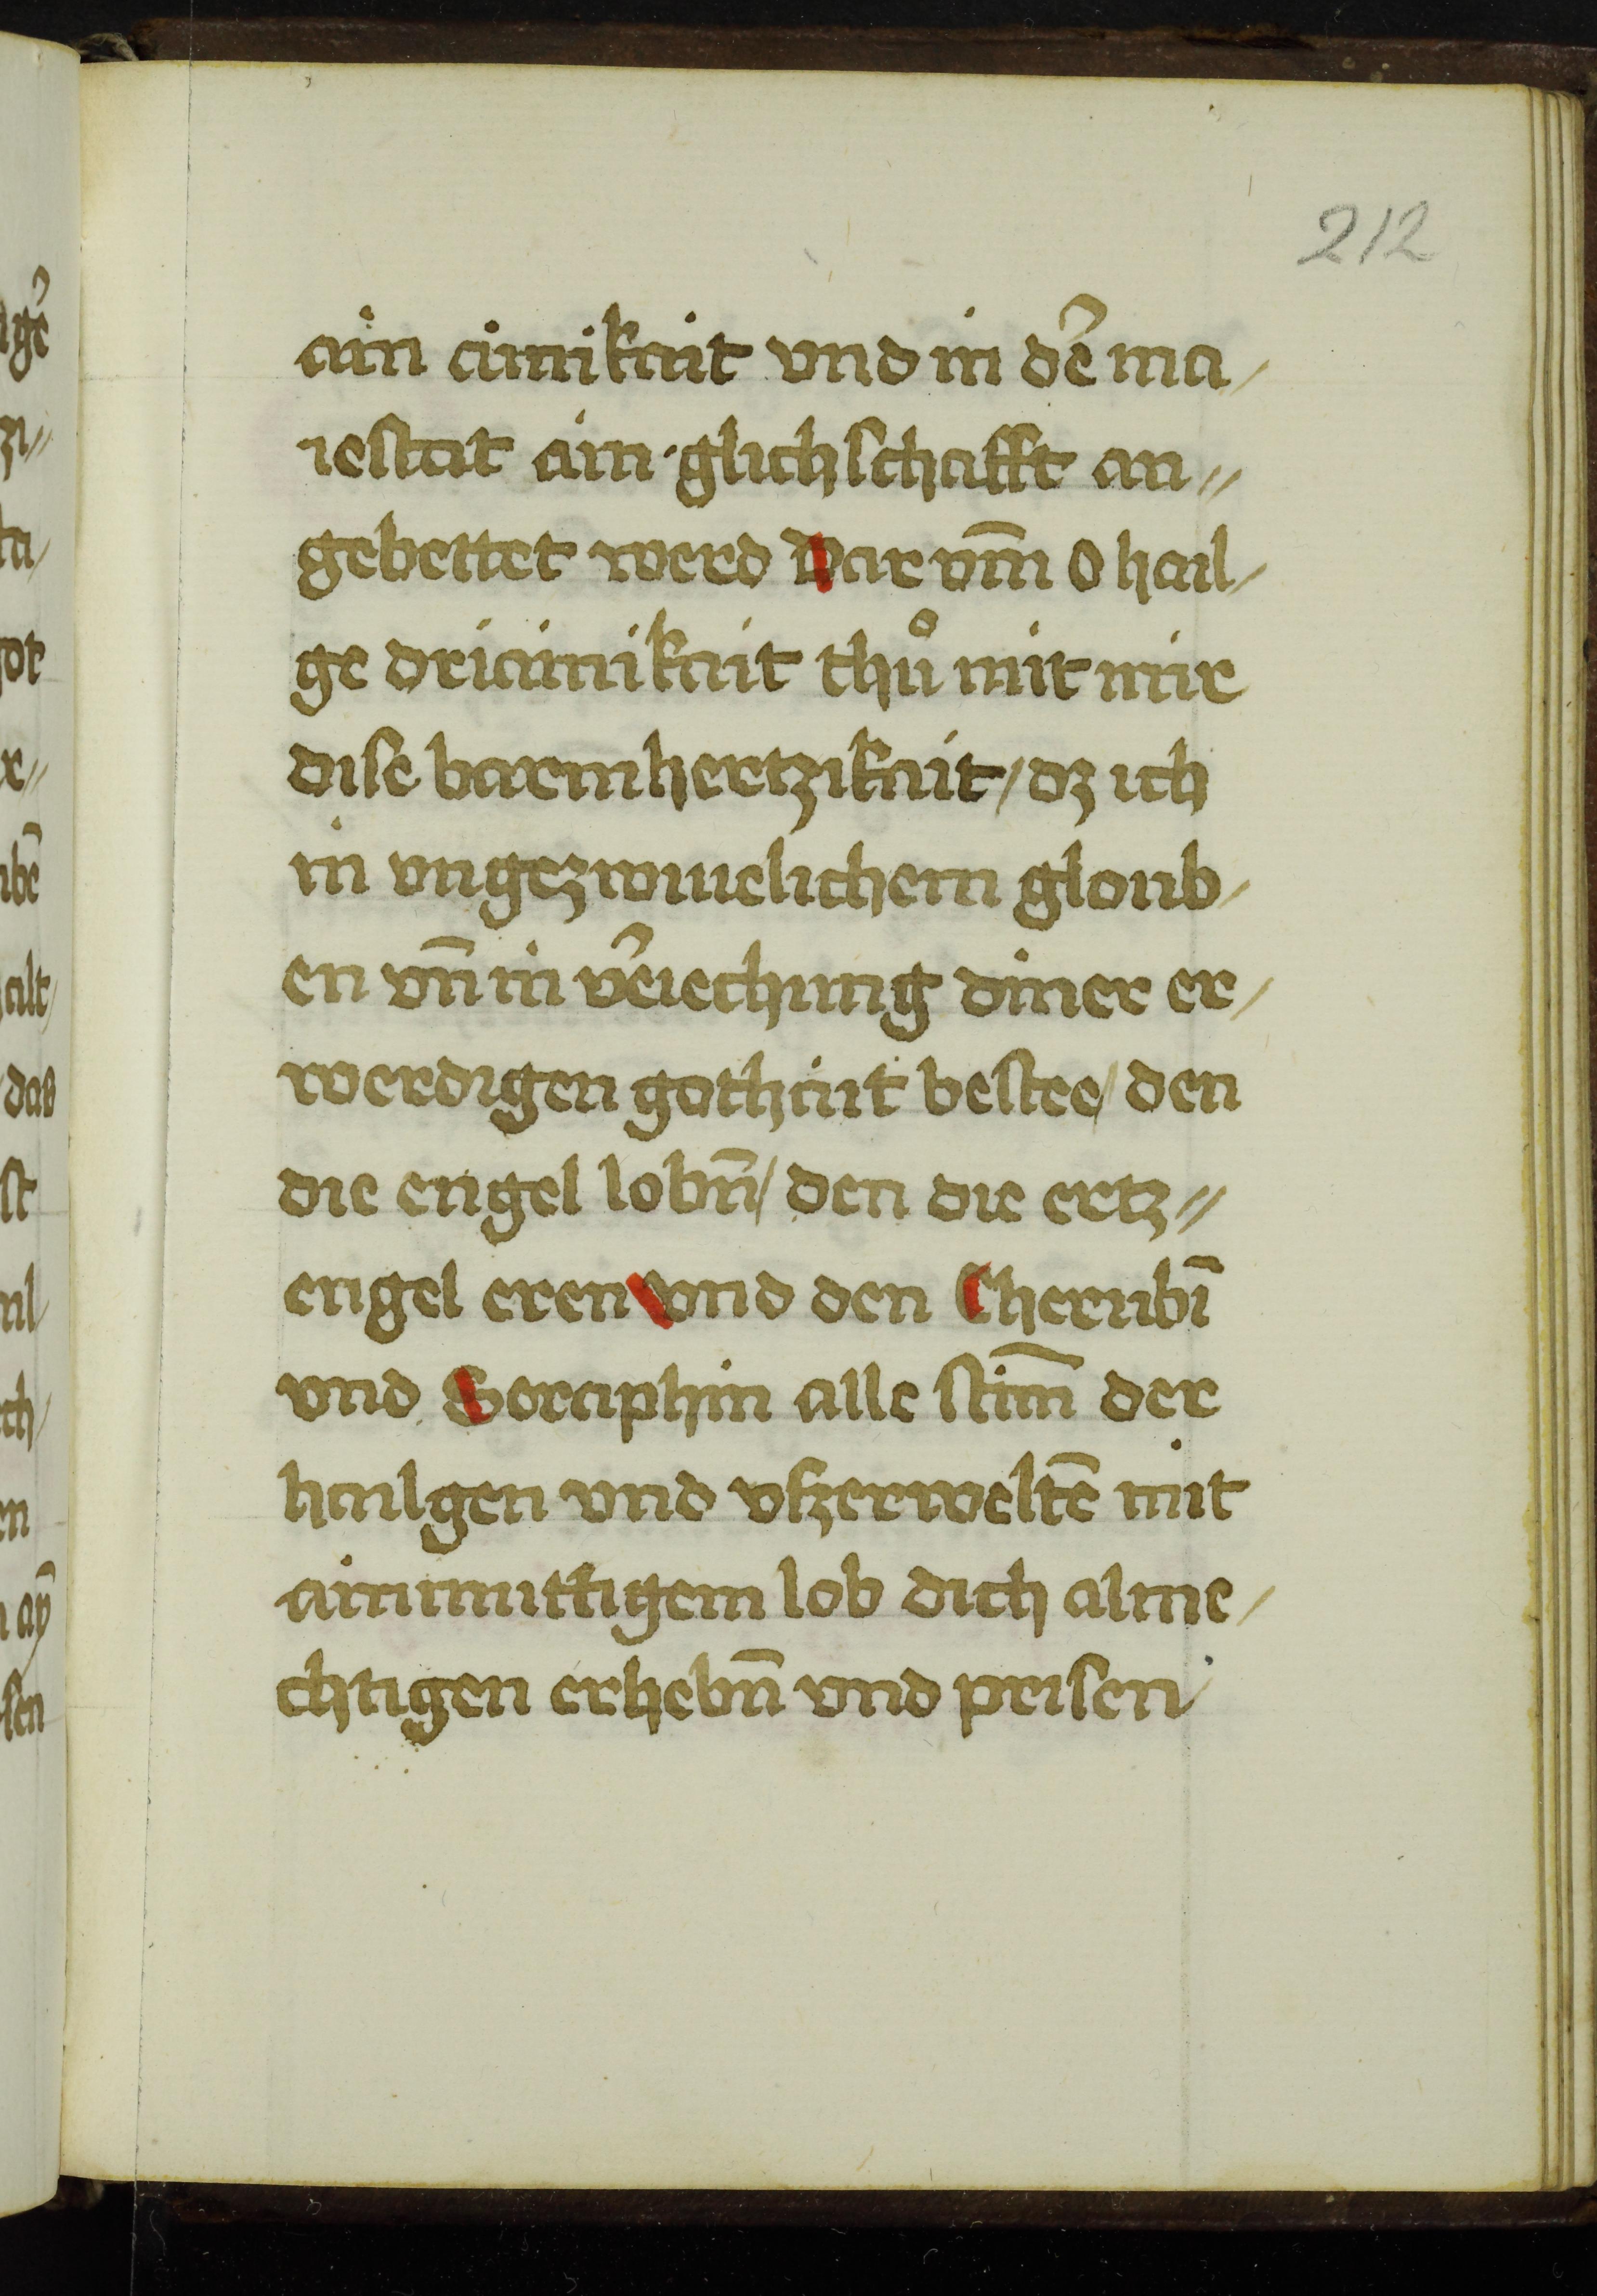 212
ain ainikait vnd in de᷑ ma/
iestat ain glichschafft an//
gebettet werd Dar vm̄ O hail/
ge driainikait thů mit mir
dise barmhertzikait/ dz ich
in vngezwiuelichem gloub/
en vn̄ in ve᷑iechung diner er/
werdigen gothait bestee/ den
die engel lobn̄/ den die ertz//
engel eren Vnd den Cherubī
vnd Seraphin alle stim̄ der
hailgen vnd vſzerweltē mit
ainmuͤttigem lob dich alme/
chtigen erhebn̄ vnd prisen